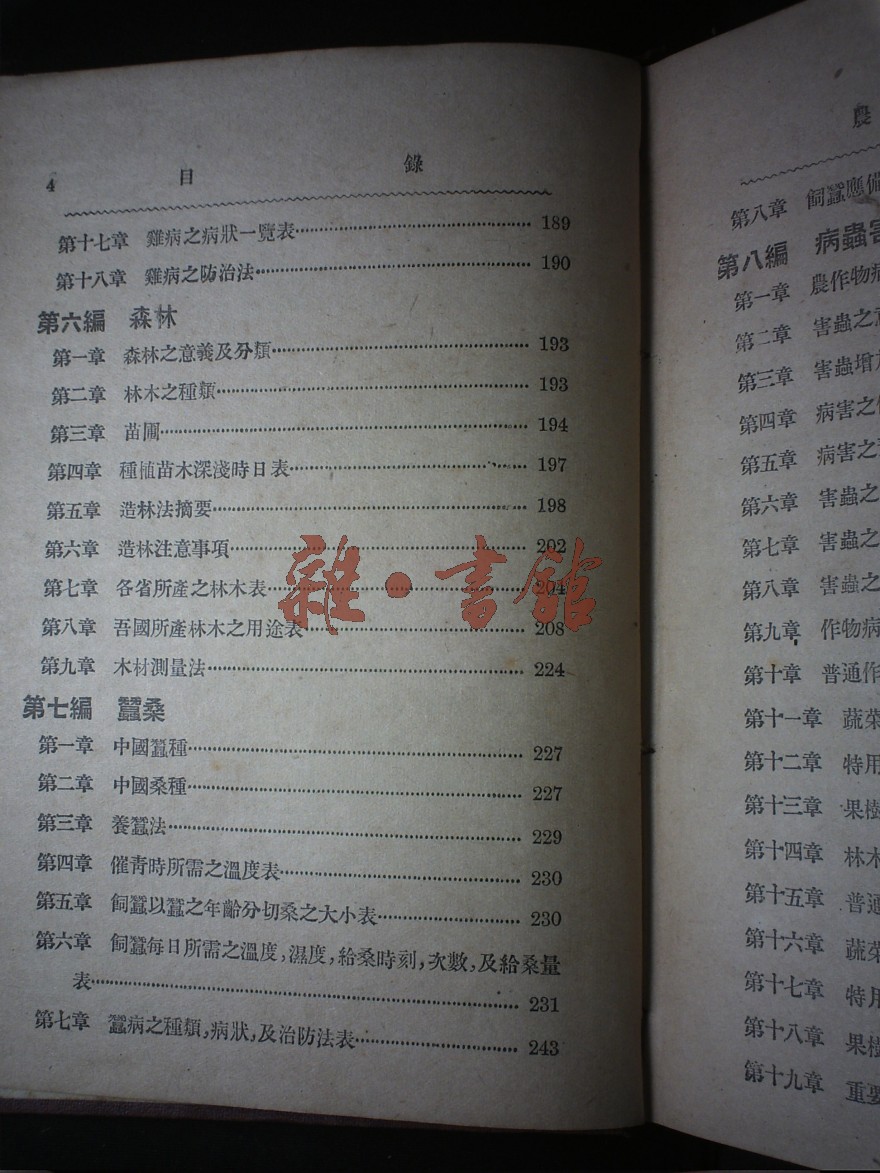 4 目 錄
第十七章 雞病之病狀一覽表 189
第十八章 雞病之防治法 190
第六編 森林
第一章 森林之意義及分類 193
第二章 林木之種類 193
第三章 苗圃 194
第四章 種植苗木深淺時日表 197
第五章 造林法摘要 198
第六章 造林注意事項 202
第七章 各省所產之林木表 204
第八章 吾國所產林木之用途表 208
第九章 木材測量法 224
第七編 蠶桑
第一章 中國蠶種 227
第二章 中國桑種 227
第三章 養蠶法 229
第四章 催青時所需之溫度表 230
第五章 飼蠶以蠶之年齡分切桑之大小表 230
第六章 飼蠶每日所需之溫度,濕度,給桑時刻,次數,及給桑量
表 231
第七章 蠶病之種類,病狀,及治防法表 243
雜·書館
農
第八章 飼蠶應備
第八編 病蟲害
第一章 農作物病
第二章 害蟲之
第三章 害蟲增
第四章 病害之
第五章 病害之
第六章 害蟲之
第七章 害蟲之
第八章 害蟲之
第九章 作物病
第十章 普通作
第十一章 蔬菜
第十二章 特用
第十三章 果樹
第十四章 林木
第十五章 普通
第十六章 蔬菜
第十七章 特用
第十八章 果樹
第十九章 重要